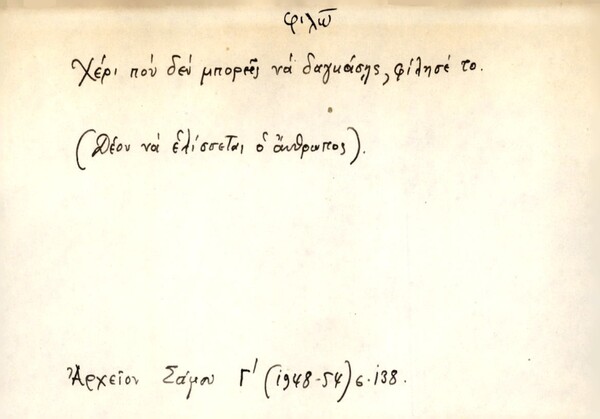 φιλῶ
Χέρι ποὺ δὲν μπορεῖς νὰ δαγκάσῃς, φίλησέ το.
(Δέον νὰ ἑλίσσεται ὁ ἄνθρωπος).
Ἀρχεῖον Σάμου Γ' (1948-54) σ. 138.